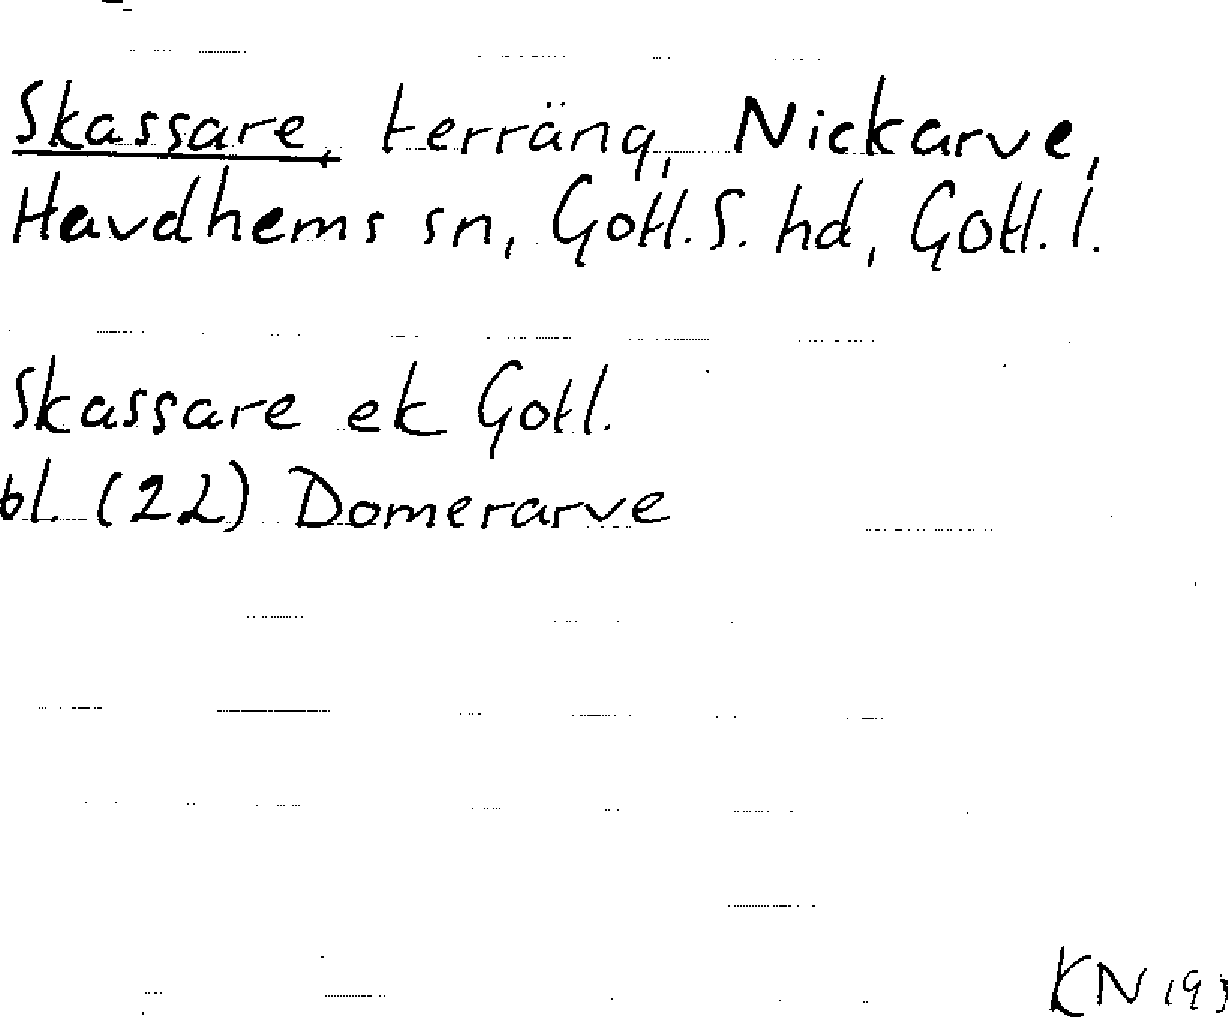 Skassare, terräng, Nickarve,
Havdhems sn, Gotl. S. hd, Gotl. l.
Skassare ek Gotl.
bl. (22) Domerarve
KN